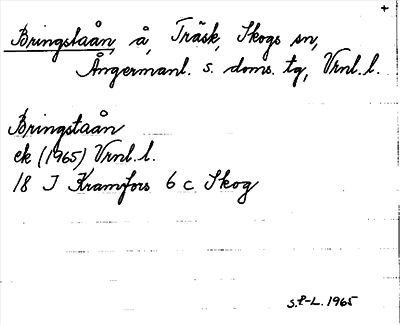 Bringstaån, å, Träsk, Skogs sn,
Ångermanl. s. doms. tg, Vrnl. l.
Bringstaån
ek (1965) Vrnl. l.
18 I Kramfors 6 c Skog
s.f-L. 1965